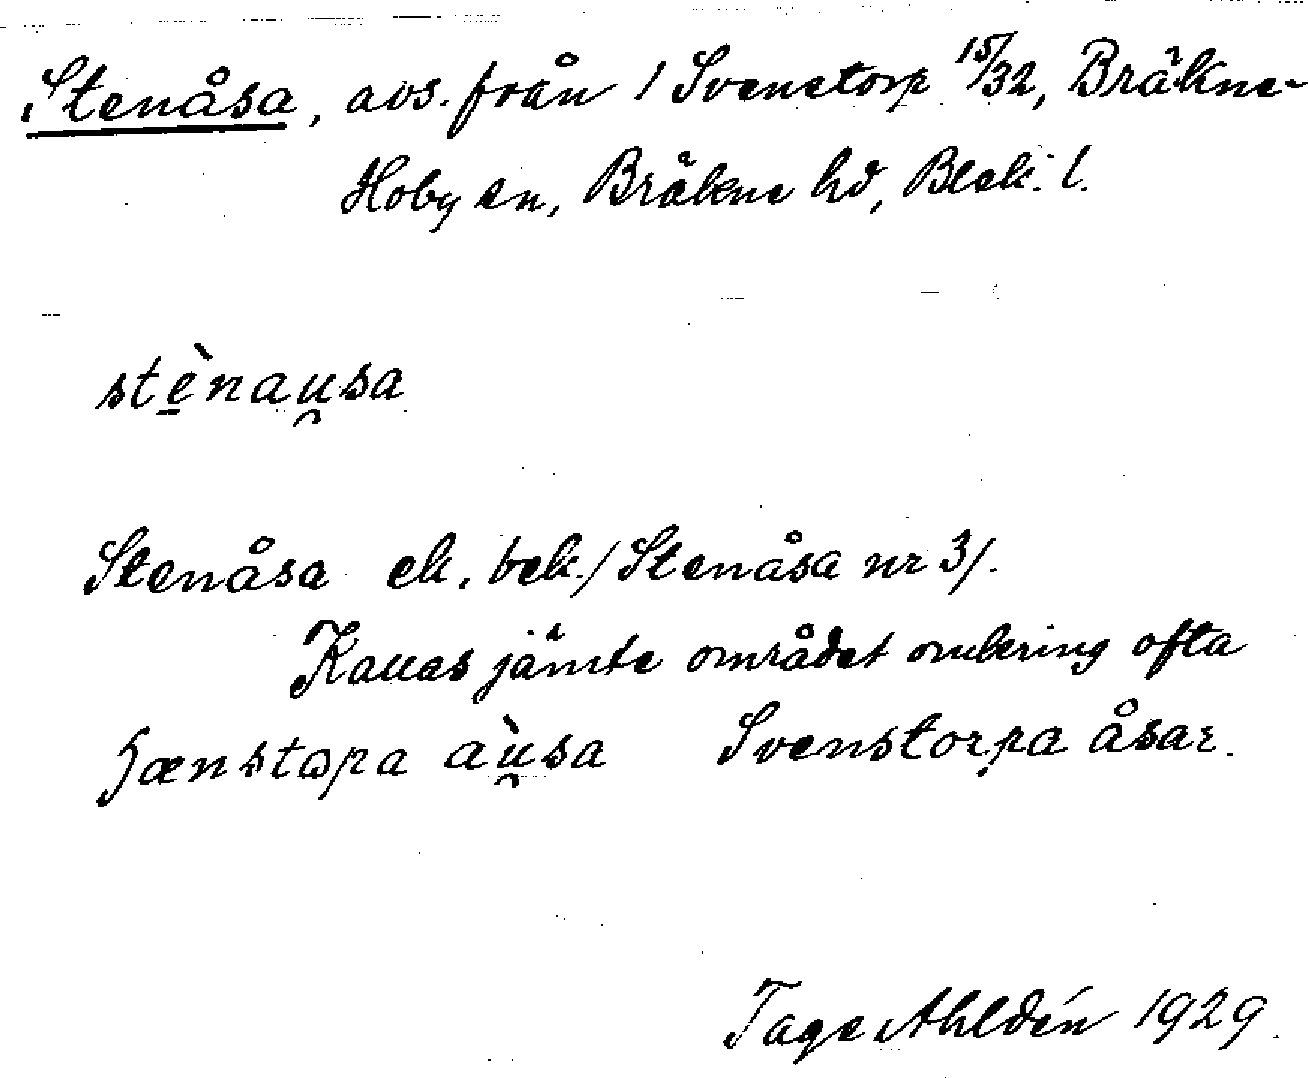 Stenåsa, avs. från 1 Svenstorp 15/32, Bräkne-
Hoby sn, Bräkne hd, Blek. l.
stè̠nau̯sa
Stenåsa ek. bek. /Stenåsa nr 3/.
Kallas jämte området omkring ofta
àu̯sa Svenstorpa åsar.
Tage Ahldén 1929